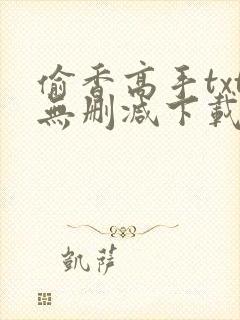 偷香高手txt
無刪減下載
凱薩